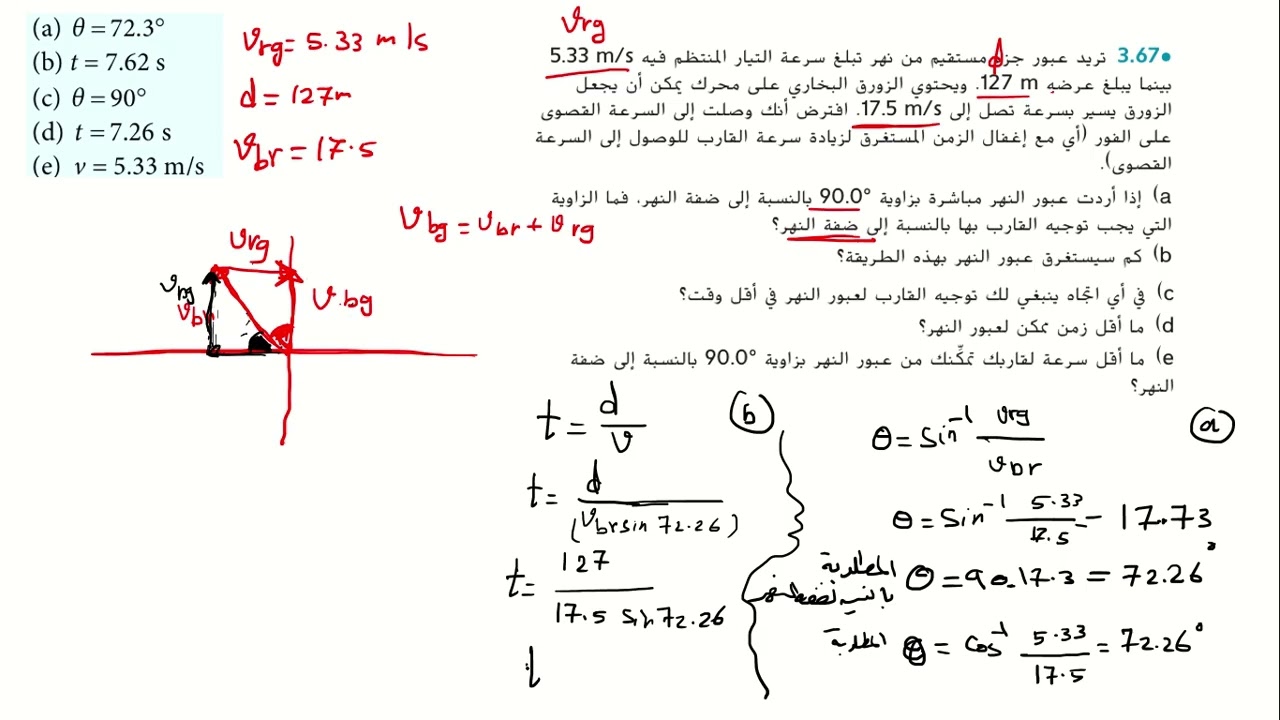 (a) θ = 72.3°
(b) t = 7.62 s
(c) θ = 90°
(d) t = 7.26 s
(e) v = 5.33 m/s
vrg = 5.33 m/s
d = 127m
vbr = 17.5
vrg
d
3.67• تريد عبور جزء مستقيم من نهر تبلغ سرعة التيار المنتظم فيه 5.33 m/s
بينما يبلغ عرضه 127 m. ويحتوي الزورق البخاري على محرك يمكن أن يجعل
الزورق يسير بسرعة تصل إلى 17.5 m/s. افترض أنك وصلت إلى السرعة القصوى
على الفور (أي مع إغفال الزمن المستغرق لزيادة سرعة القارب للوصول إلى السرعة
القصوى).
a) إذا أردت عبور النهر مباشرة بزاوية 90.0° بالنسبة إلى ضفة النهر، فما الزاوية
التي يجب توجيه القارب بها بالنسبة إلى ضفة النهر؟
b) كم سيستغرق عبور النهر بهذه الطريقة؟
c) في أي اتجاه ينبغي لك توجيه القارب لعبور النهر في أقل وقت؟
d) ما أقل زمن يمكن لعبور النهر؟
e) ما أقل سرعة لقاربك تمكِّنك من عبور النهر بزاوية 90.0° بالنسبة إلى ضفة
النهر؟
vbg = vbr + vrg
vrg
vbr
v.bg
(a)
θ = Sin⁻¹ vrg / vbr
θ = Sin⁻¹ 5.33 / 17.5 = 17.73°
θ = 90-17.3 = 72.26 المطلوبة
المطلوبة θ = cos⁻¹ 5.33 / 17.5 = 72.26°
(b)
t = d / v
t = d / (vbr sin 72.26)
t = 127 / 17.5 sin 72.26
t